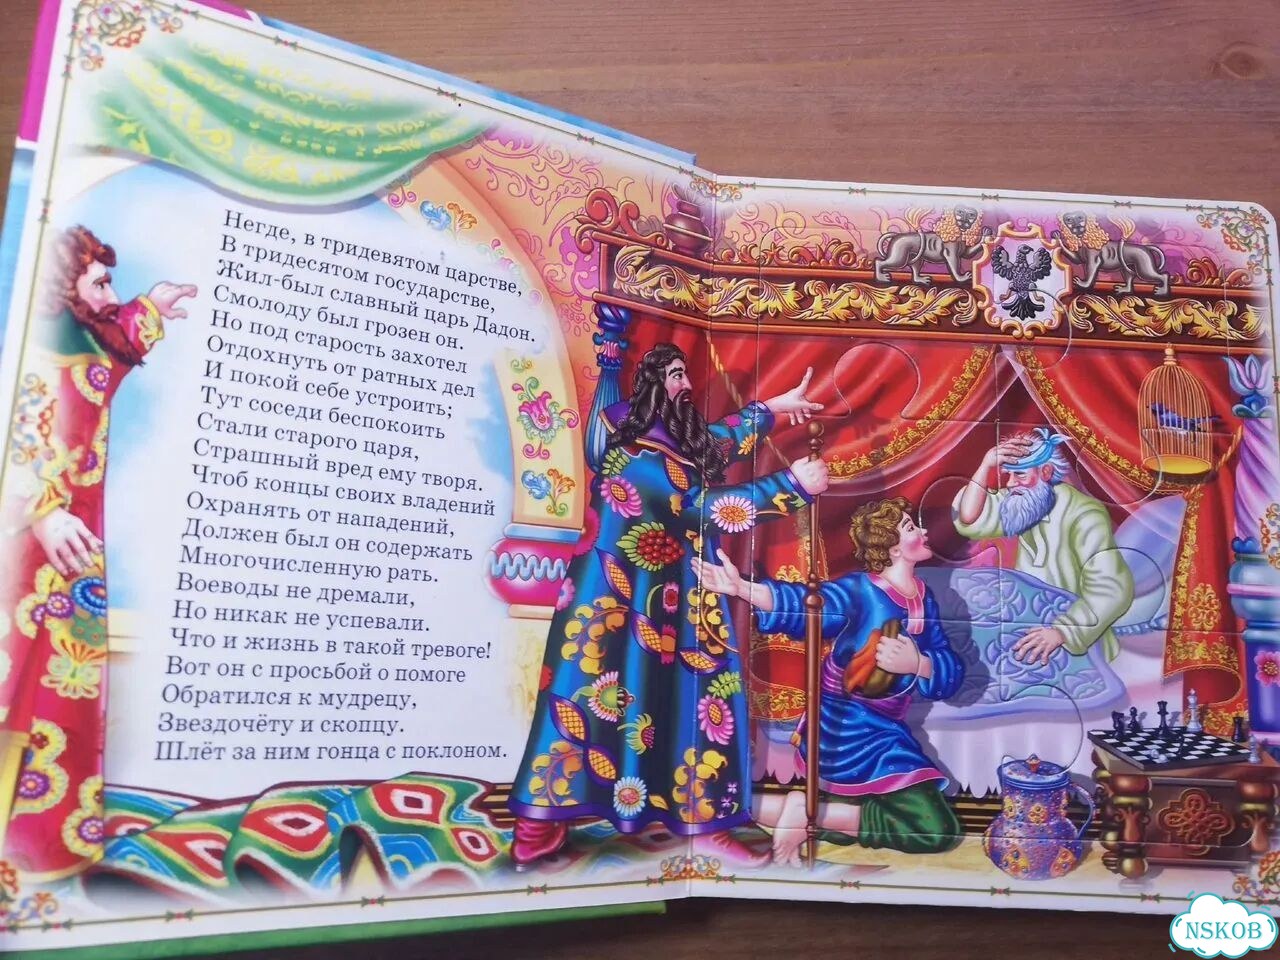 Негде, в тридевятом царстве,
В тридесятом государстве,
Жил-был славный царь Дадон.
Смолоду был грозен он.
Но под старость захотел
Отдохнуть от ратных дел
И покой себе устроить;
Тут соседи беспокоить
Стали старого царя,
Страшный вред ему творя.
Чтоб концы своих владений
Охранять от нападений,
Должен был он содержать
Многочисленную рать.
Воеводы не дремали,
Но никак не успевали.
Что и жизнь в такой тревоге!
Вот он с просьбой о помоге
Обратился к мудрецу,
Звездочёту и скопцу.
Шлёт за ним гонца с поклоном.
NSKOB